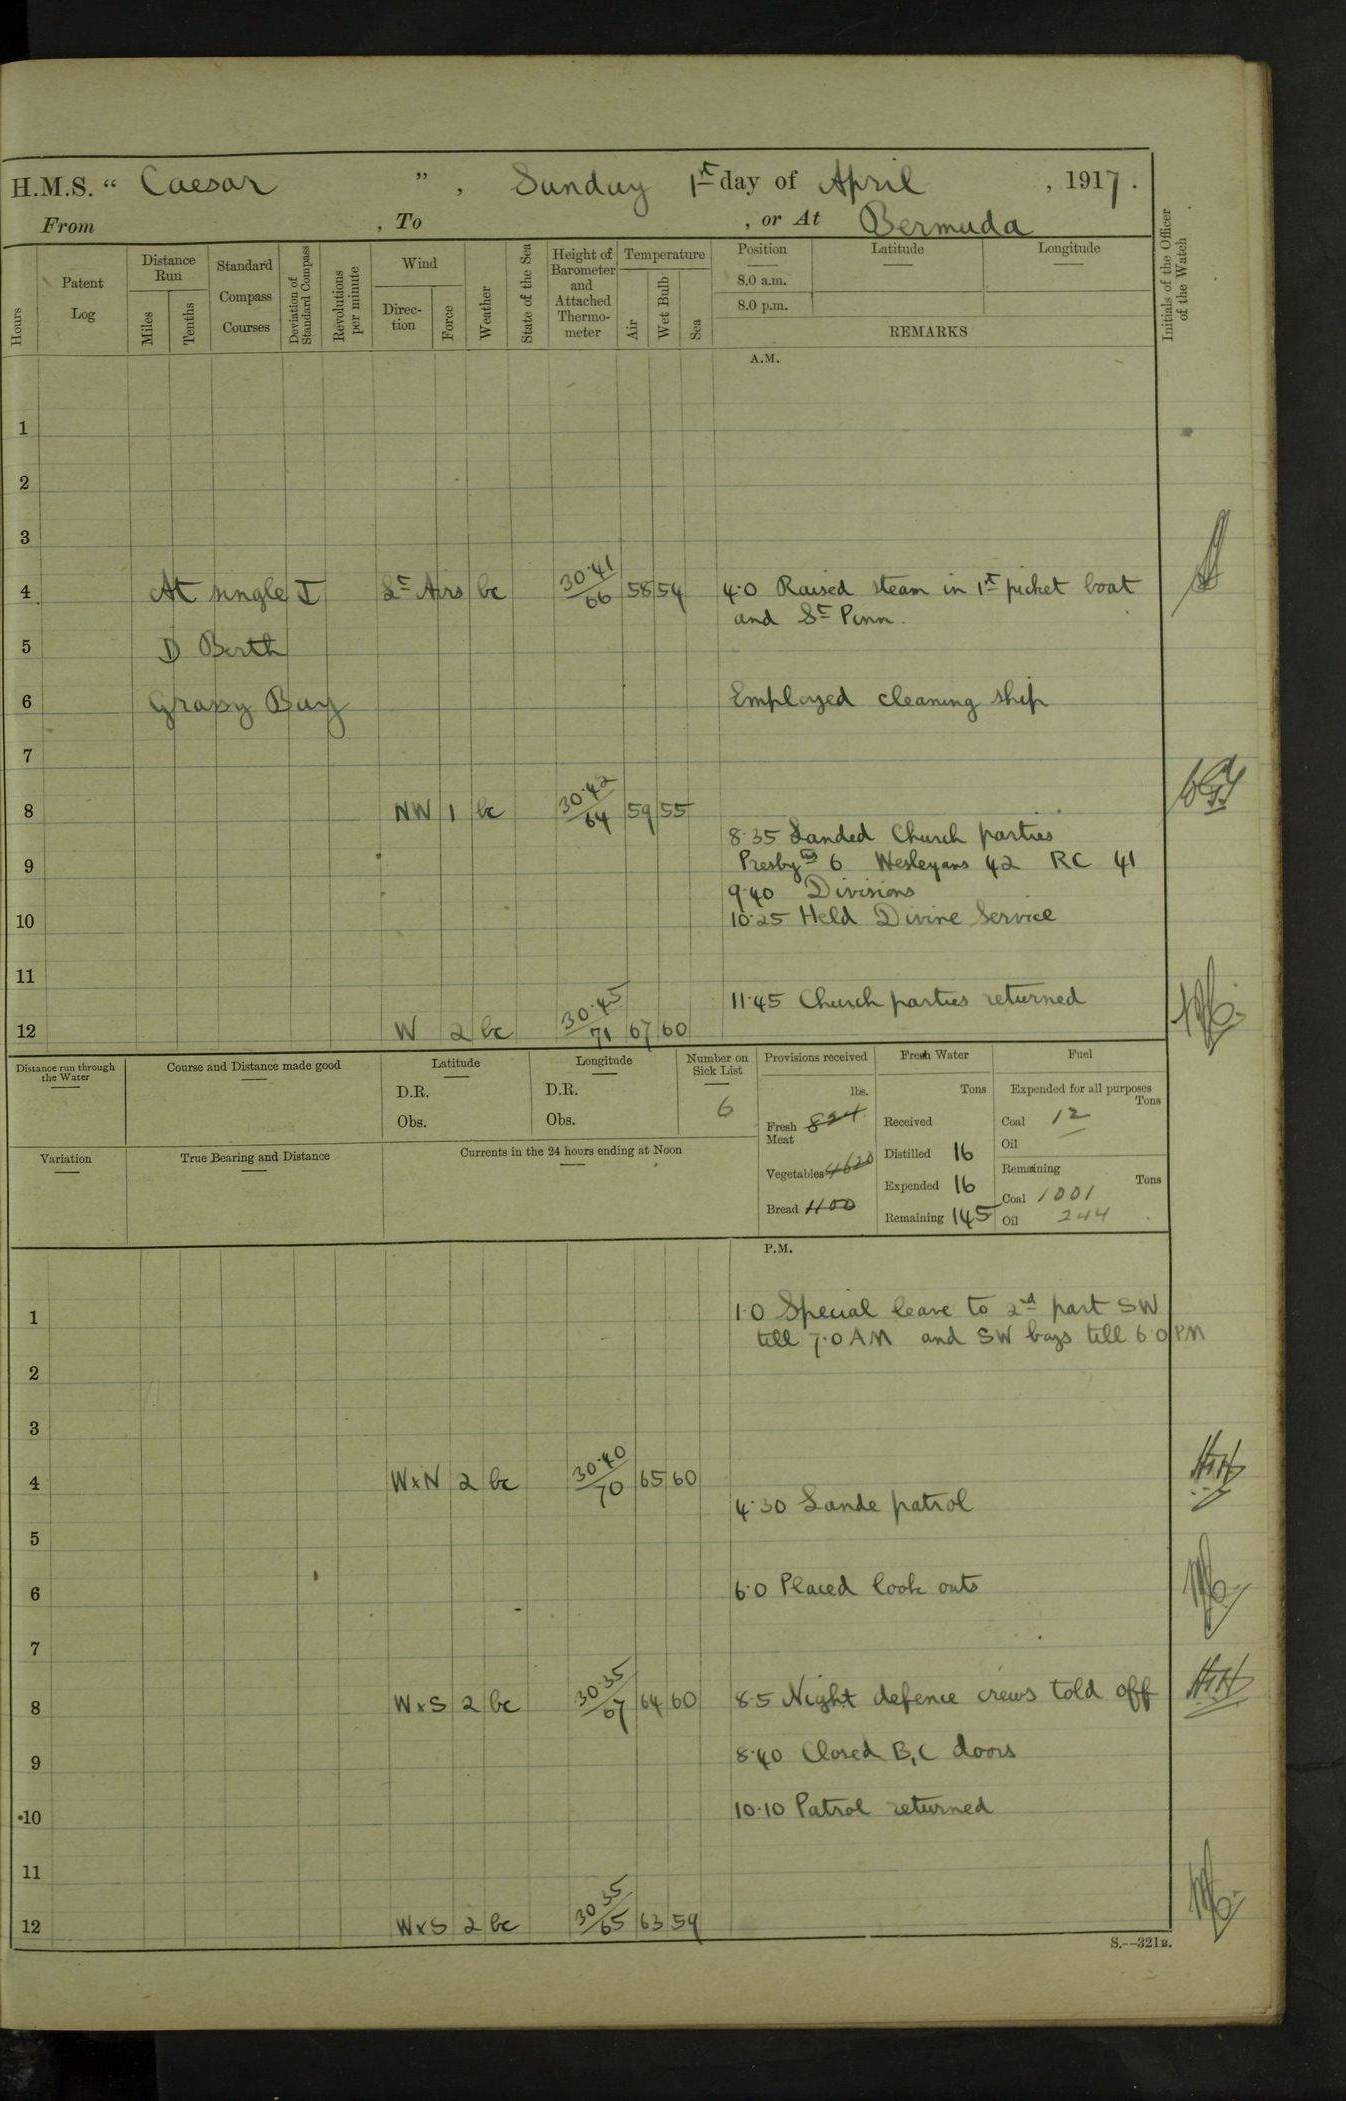 H.M.S. “ Caesar ” , Sunday 1st day of April , 1917.
From , To , or At Bermuda
Hours
Patent Log
Distance Run
Miles
Tenths
Standard Compass Courses
Deviation of Standard Compass
Revolutions per minute
Wind
Direc-tion
Force
Weather
State of the Sea
Height of Barometer and Attached Thermo-meter
Temperature
Air
Wet Bulb
Sea
Position Latitude Longitude
8.0 a.m.
8.0 p.m.
REMARKS
Initials of the Officer of the Watch
A.M.
1
2
3
4 At single I Lt Airs bc 30.41/66 58 54 4.0 Raised steam in 1st picket boat
and St Penn.
5 D Berth
6 Grassy Bay Employed cleaning ship
7
8 NW 1 bc 30.42/64 59 55
8.35 Landed Church parties
9 Presbyns 6 Wesleyans 42 RC 41
9.40 Divisions
10 10.25 Held Divine Service
11
11.45 Church parties returned
12 W 2 bc 30.45/71 67 60
Distance run through the Water
Course and Distance made good
Latitude
D.R.
Obs.
Longitude
D.R.
Obs.
Number on Sick List
6
Provisions received
lbs.
Fresh Meat 824
Vegetables 4620
Bread 1100
Fresh Water
Tons
Received
Distilled 16
Expended 16
Remaining 145
Fuel
Expended for all purposes
Tons
Coal 12
Oil
Remaining
Tons
Coal 1001
Oil 244
Variation
True Bearing and Distance
Currents in the 24 hours ending at Noon
P.M.
1 1.0 Special leave to 2nd part SW
till 7.0 AM and SW boys till 6.0 PM
2
3
4 WxN 2 bc 30.40/70 65 60
4.30 Lande patrol
5
6 6.0 Placed look outs
7
8 WxS 2 bc 30.35/67 64 60 8.5 Night defence crews told off
9 8.40 Closed B,C doors
10 10.10 Patrol returned
11
12 WxS 2 bc 30.35/65 63 59
S.—321B.